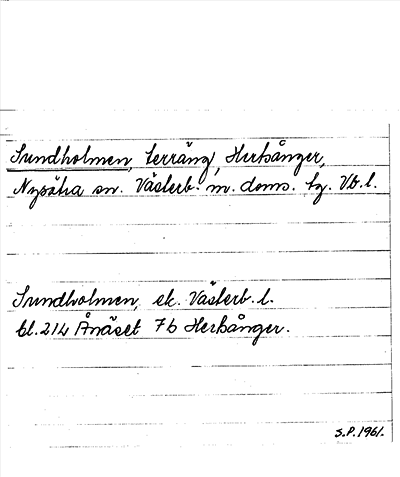 Sundholmen, terräng, Herrsånger,
Nysätra sn. Västerb. m. doms. tg. Vb.l.
Sundholmen, ek. Västerb. l.
bl. 214 Ånäset 7b Herrsånger.
S.P. 1961.